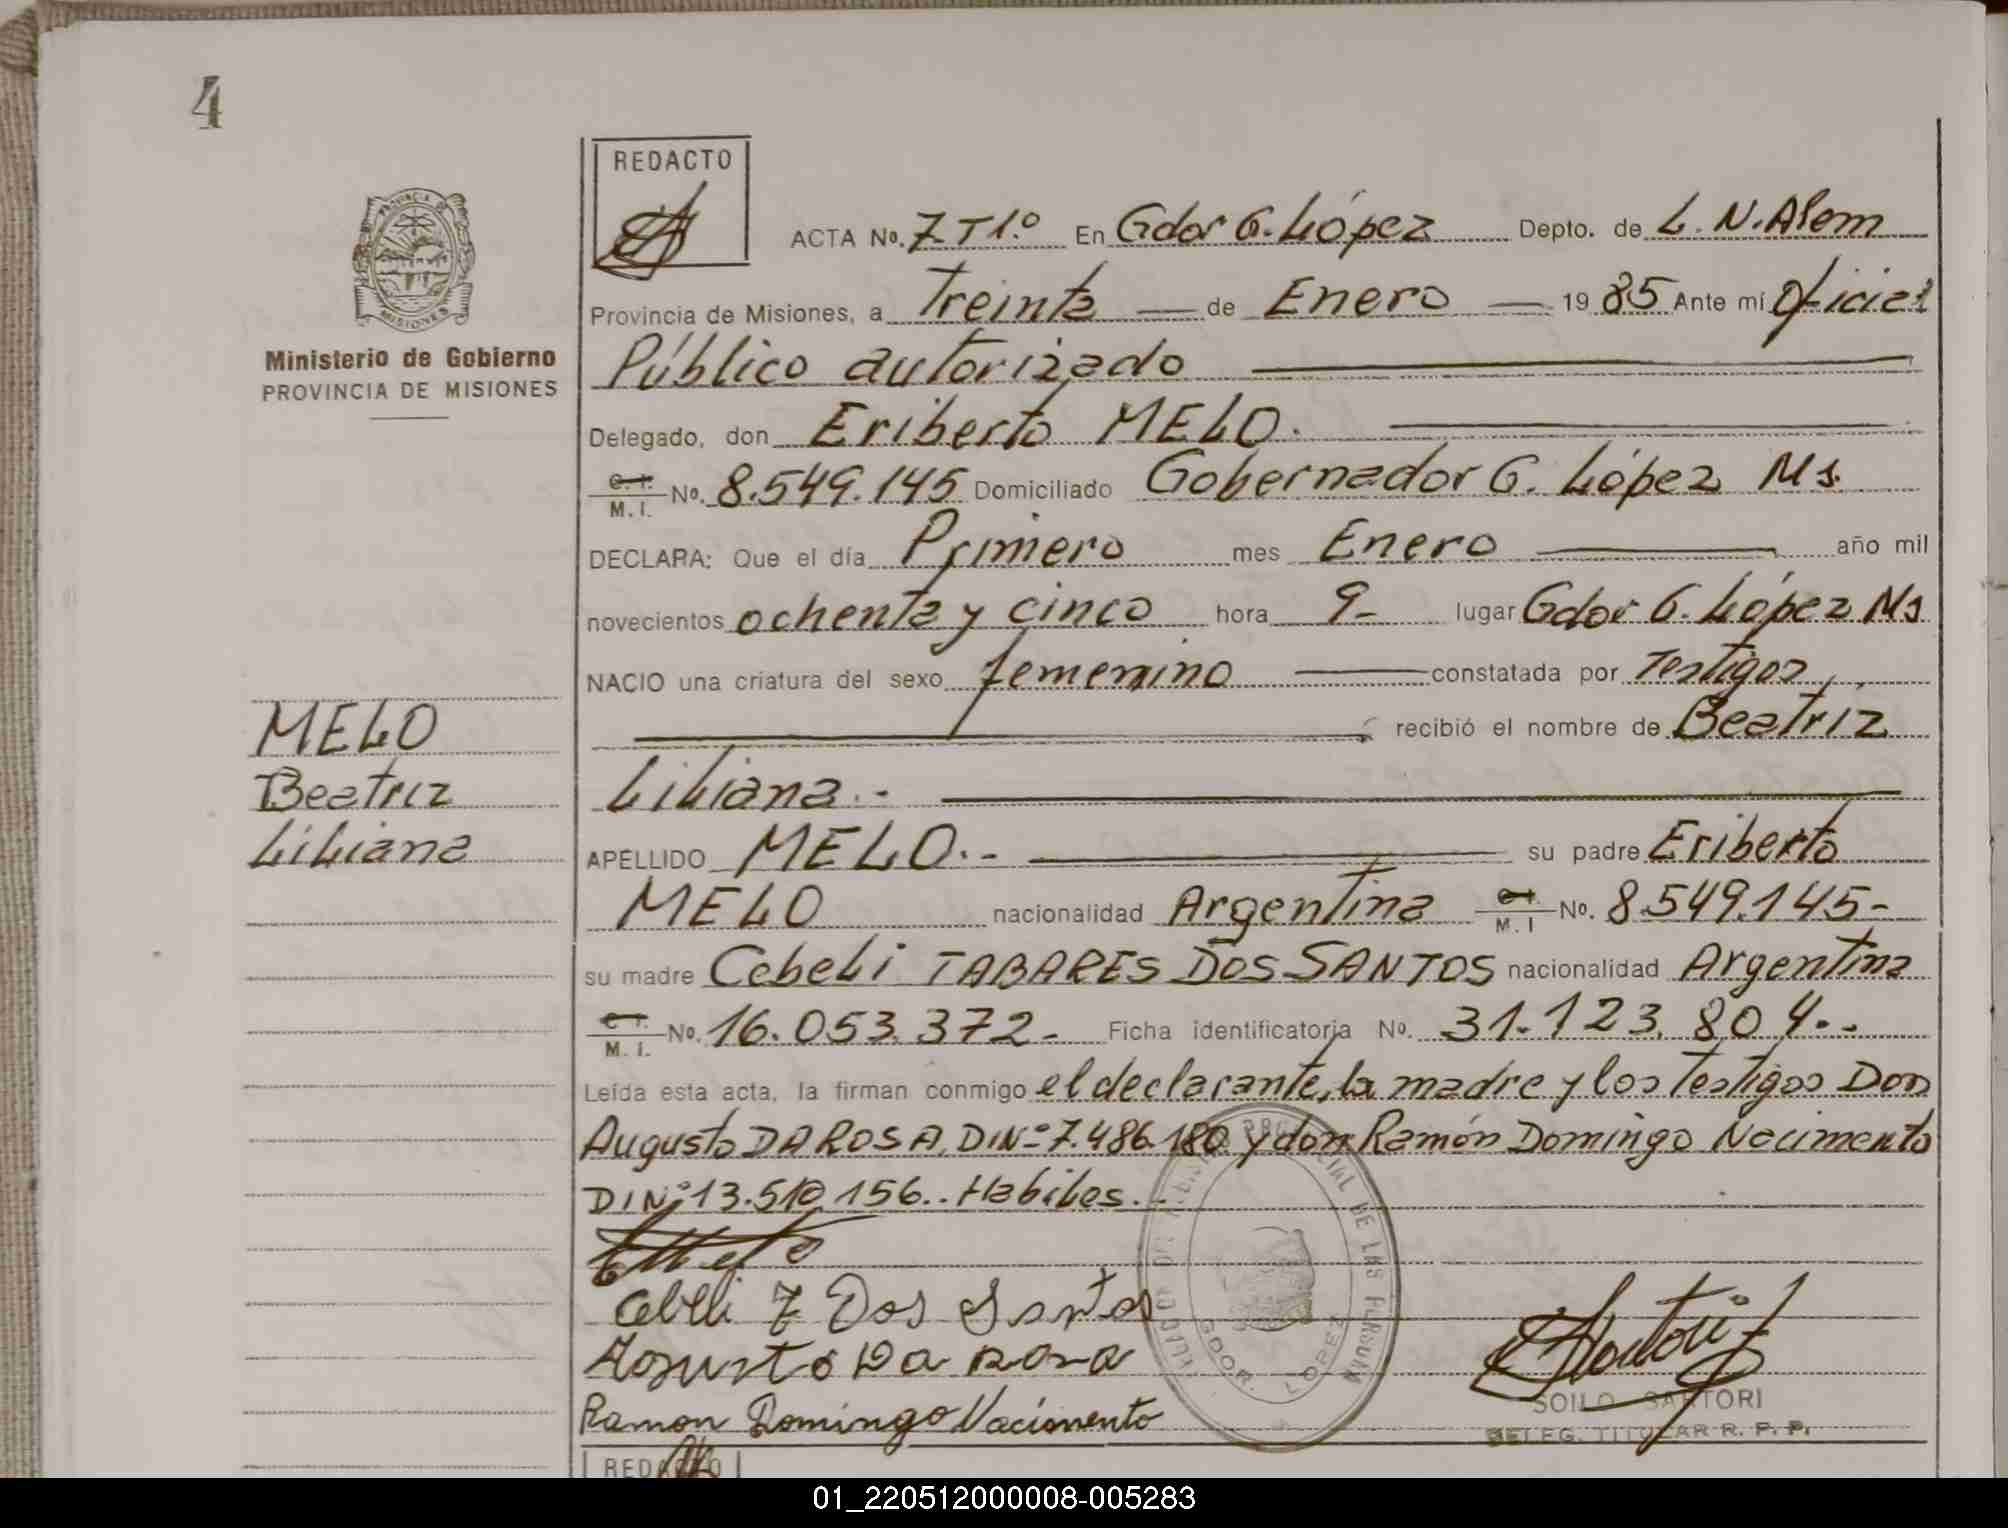 4
REDACTO
ACTA No. 7-T1.º En Gdor G. López Depto. de L. N. Alem
PROVINCIA DE MISIONES
Provincia de Misiones, a Treinta — de Enero — 1985 Ante mí Oficial
Ministerio de Gobierno
PROVINCIA DE MISIONES
Público autorizado
Delegado, don Eriberto MELO.
C. I. M. I. No. 8.549.145 Domiciliado Gobernador G. López Ms.
DECLARA: Que el día Primero mes Enero — año mil
novecientos ochenta y cinco hora 9- lugar Gdor G. López Ms
NACIO una criatura del sexo femenino — constatada por Testigos,
recibió el nombre de Beatriz
Liliana.-
MELO
Beatriz
Liliana
APELLIDO MELO.- — su padre Eriberto
MELO nacionalidad Argentina C. I. M. I No. 8.549.145-
su madre Cebeli TABARES DOS SANTOS nacionalidad Argentina
C. I. M. I. No. 16.053.372- Ficha identificatoria No. 31.123.804.-
Leída esta acta, la firman conmigo el declarante, la madre y los testigos Don
Augusto DA ROSA, DINº 7.486.180 y don Ramón Domingo Nacimento
DINº 13.510.156.. Habiles.-
Cebeli T Dos Santos
Agusto Da Rosa
Ramon Domingo Nacimento
REGISTRO PROVINCIAL DE LAS PERSONAS
GDOR. LOPEZ
SOILO SARTORI
DELEG. TITULAR R. P. P.
REDACTO
01_220512000008-005283